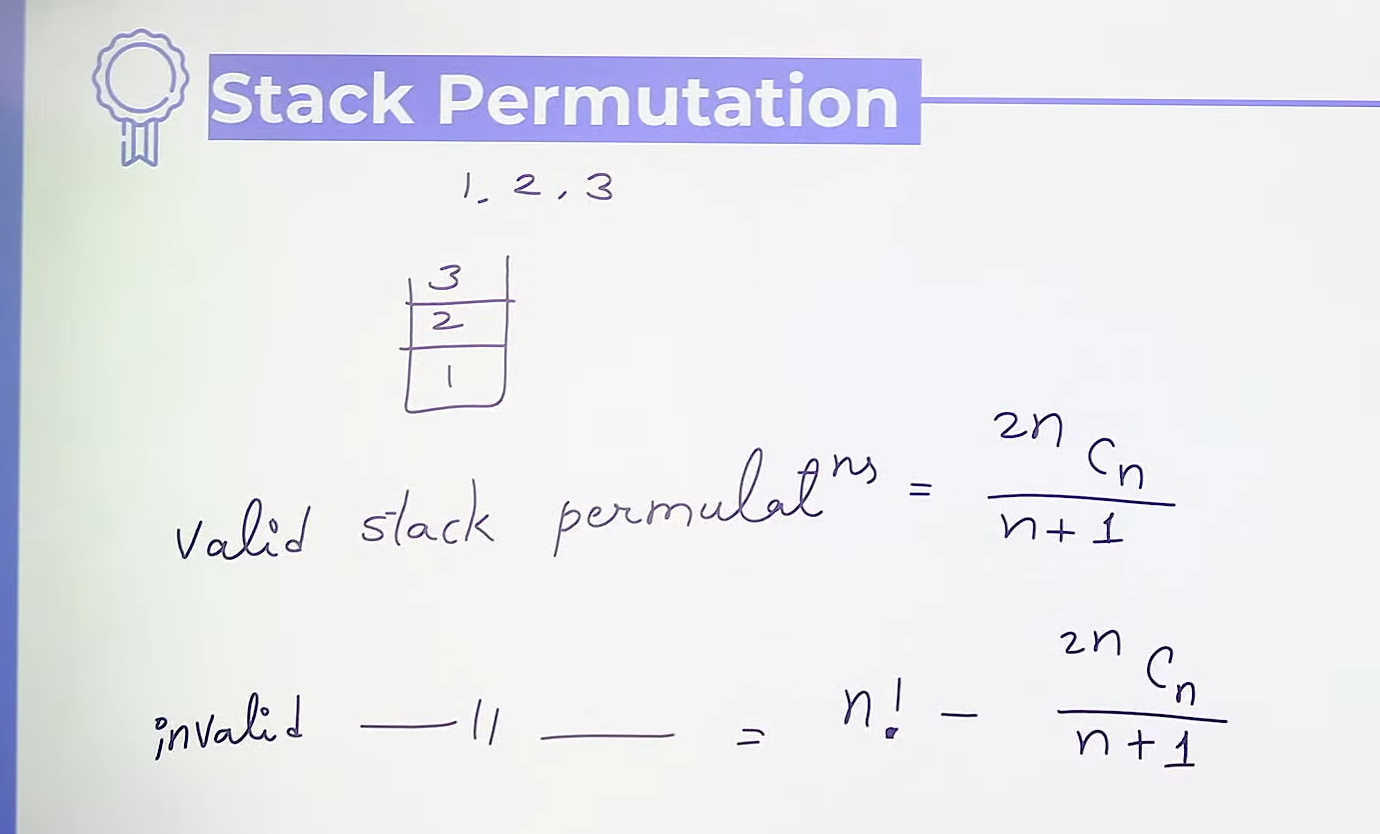 Stack Permutation
1, 2, 3
3
2
1
valid stack permutatⁿˢ = ²ⁿCₙ / n+1
invalid —〃— = n! - ²ⁿCₙ / n+1